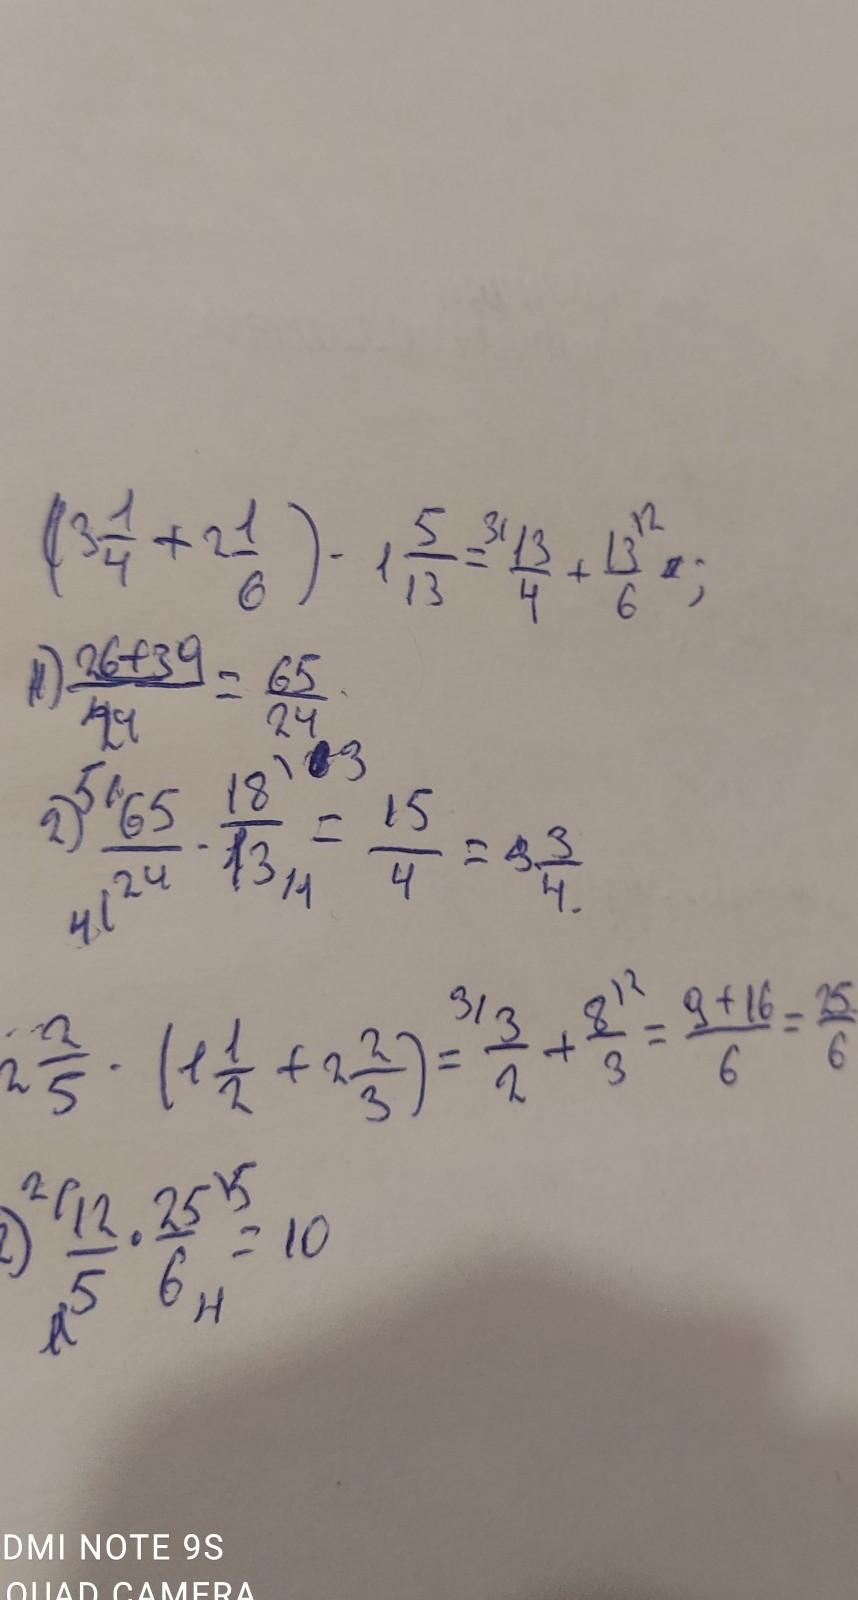 (3 1/4 + 2 1/6) · 1 5/13 = 3/ 13/4 + 13/6 \2 ;
1) 26+39/24 = 65/24
2) 5/ 65/24 4/ · 18/13 \3 /1 = 15/4 = 3 3/4.
2 2/5 · (1 1/2 + 2 2/3) = 3/ 3/2 + 8/3 \2 = 9+16/6 = 25/6
2) 2/ 12/5 1 · 25/6 \5 /1 = 10
DMI NOTE 9S
QUAD CAMERA